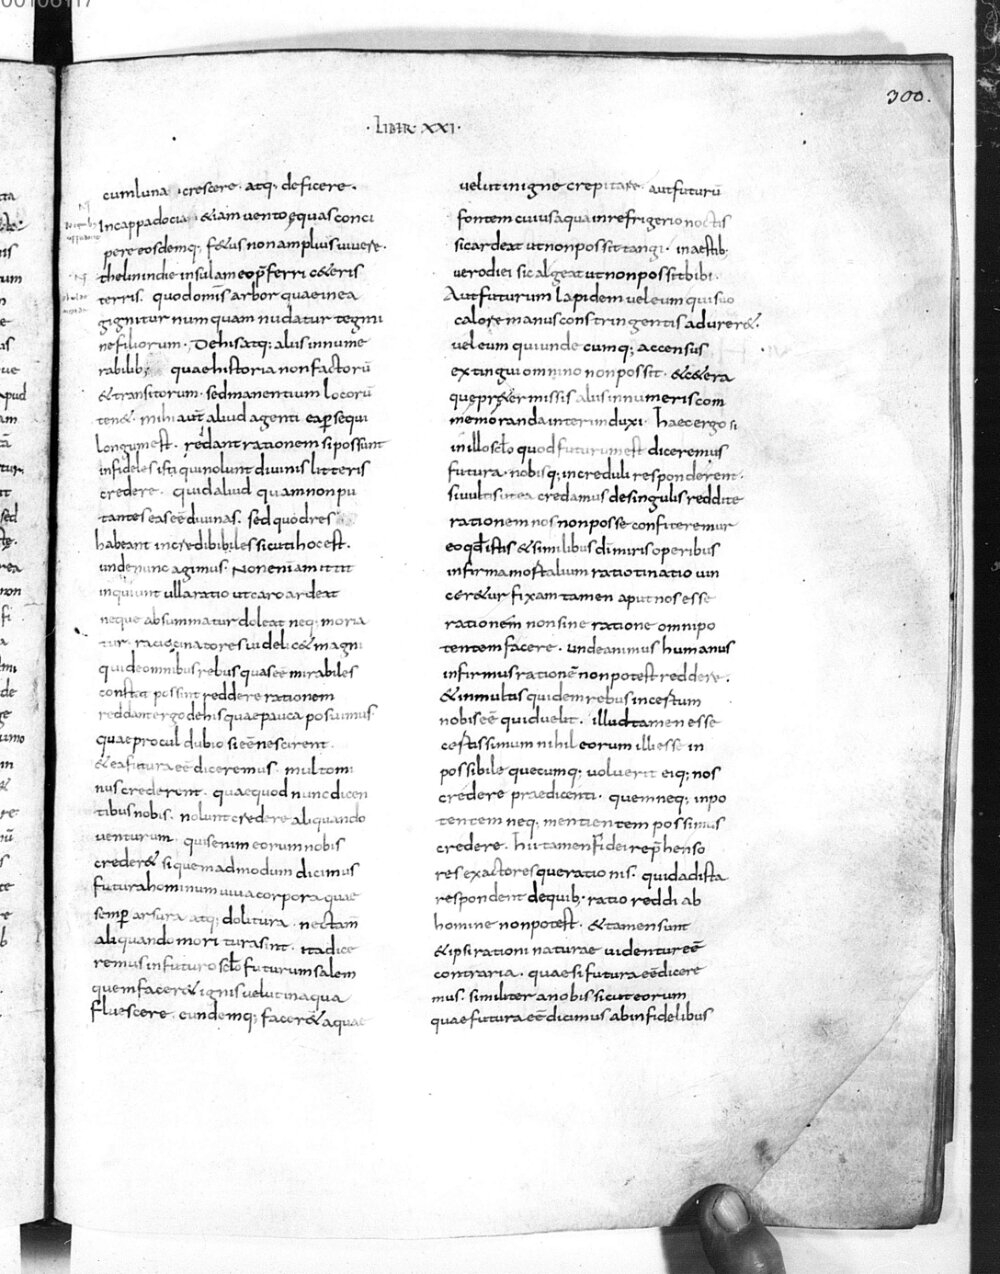 300.
·LIBER·XXI·
cum luna crescere· atq; deficere·
Incappadocia &iam uento equas conci
pere eosdemq; f&us non amplius uiuere·
thelinindie insulam eo p̄ferri c&eris
terris· quod omīs arbor quae in ea
gignitur num quam nudatur tegmi
ne filiorum· De his atq; aliis innume
rabilib; quae historia non factorū
& transitorum· sed manentium locorū
ten&· mihi aūt aliud agenti ea p̄sequi
longum est· reddant rationem si possunt
infideles isti qui nolunt diuinis litteris
credere· quid aliud quam non pu
tantes eas eē diuinas· sed quod res
habeant incredibibiles sicuti hoc est·
unde nunc agimus· Non enim am ittit
inquiunt ulla ratio ut caro ardeat
neque absummatur doleat neq; moria
tur· raciocinatores uidelic& magni
qui de omnibus rebus quas eē mirabiles
constat possint reddere rationem
reddant ergo de his quae pauca posuimus
quae procul dubio si eē nescirent·
& ea futura eē diceremus· multo mi
nus crederent· quae quod nunc dicen
tibus nobis· nolunt credere aliquando
uenturum· quis enim eorum nobis
creder& si quem ad modum dicimus
futura hominum uiua corpora quae
semp̄ arsura atq; dolitura· nec tam̄
aliquando moritura sint· ita dice
remus in futuro sc̄lo futurum salem
quem facer& ignis uelut in aqua
fluescere· eundemq; facer& aqua
uelut in igne crepitare· aut futurū
fontem cuius aqua in refrigerio noctis
sic ardeat ut non possit tangi· in aestib;
uero diei sic algeat ut non possit bibi·
Aut futurum lapidem uel eum qui suo
calore manus constringentis adurer&·
uel eum qui undecumq; accensus
extingui omnino non possit· & c&era
que pr&ermissis aliis innumeris com
memoranda interim duxi· haec ergo si
in illo sc̄lo quod futurum est diceremus
futura· nobisq; increduli responderent·
si uultis ut ea credamus de singulis reddite
rationem nos non posse confiteremur
eo qđ istis & similibus dī miris operibus
infirma mortalium ratiotinatio uin
cer&ur fixam tamen aput nos esse
rationem non sine ratione omnipo
tentem facere· unde animus humanus
infirmus rationē non potest reddere·
& in multis quidem rebus incertum
nobis eē quid uelit· illud tamen esse
certissimum nihil eorum illi esse in
possibile quecumq; uoluerit eiq; nos
credere praedicenti· quem neq; inpo
tentem neq; mentientem possimus
credere· hii tamen fidei rep̄henso
res exactoresque rationis· quid ad ista
respondent de quib; ratio reddi ab
homine non potest· & tamen sunt
& ipsi rationi naturae uidentur eē
contraria· quae si futura eē dicere
mus· similiter a nobis sicut eorum
quae futura eē dicimus ab infidelibus